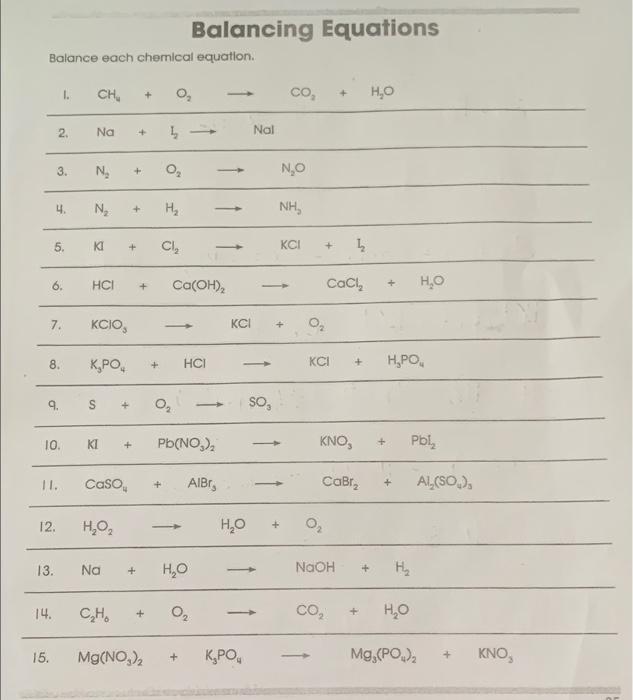 Balancing Equations
Balance each chemical equation.
1. CH₄ + O₂ → CO₂ + H₂O
2. Na + I₂ → NaI
3. N₂ + O₂ → N₂O
4. N₂ + H₂ → NH₃
5. KI + Cl₂ → KCl + I₂
6. HCl + Ca(OH)₂ → CaCl₂ + H₂O
7. KClO₃ → KCl + O₂
8. K₃PO₄ + HCl → KCl + H₃PO₄
9. S + O₂ → SO₃
10. KI + Pb(NO₃)₂ → KNO₃ + PbI₂
11. CaSO₄ + AlBr₃ → CaBr₂ + Al₂(SO₄)₃
12. H₂O₂ → H₂O + O₂
13. Na + H₂O → NaOH + H₂
14. C₂H₆ + O₂ → CO₂ + H₂O
15. Mg(NO₃)₂ + K₃PO₄ → Mg₃(PO₄)₂ + KNO₃